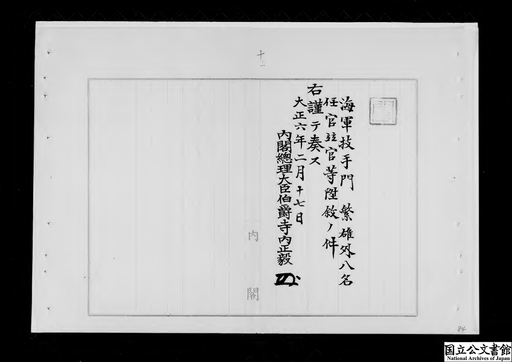 十一
海軍技手門繁雄外八名
任官竝官等陞敘ノ件
右謹テ奏ス
大正六年二月十七日
內閣總理大臣伯爵寺內正毅
內閣
84
国立公文書館
National Archives of Japan